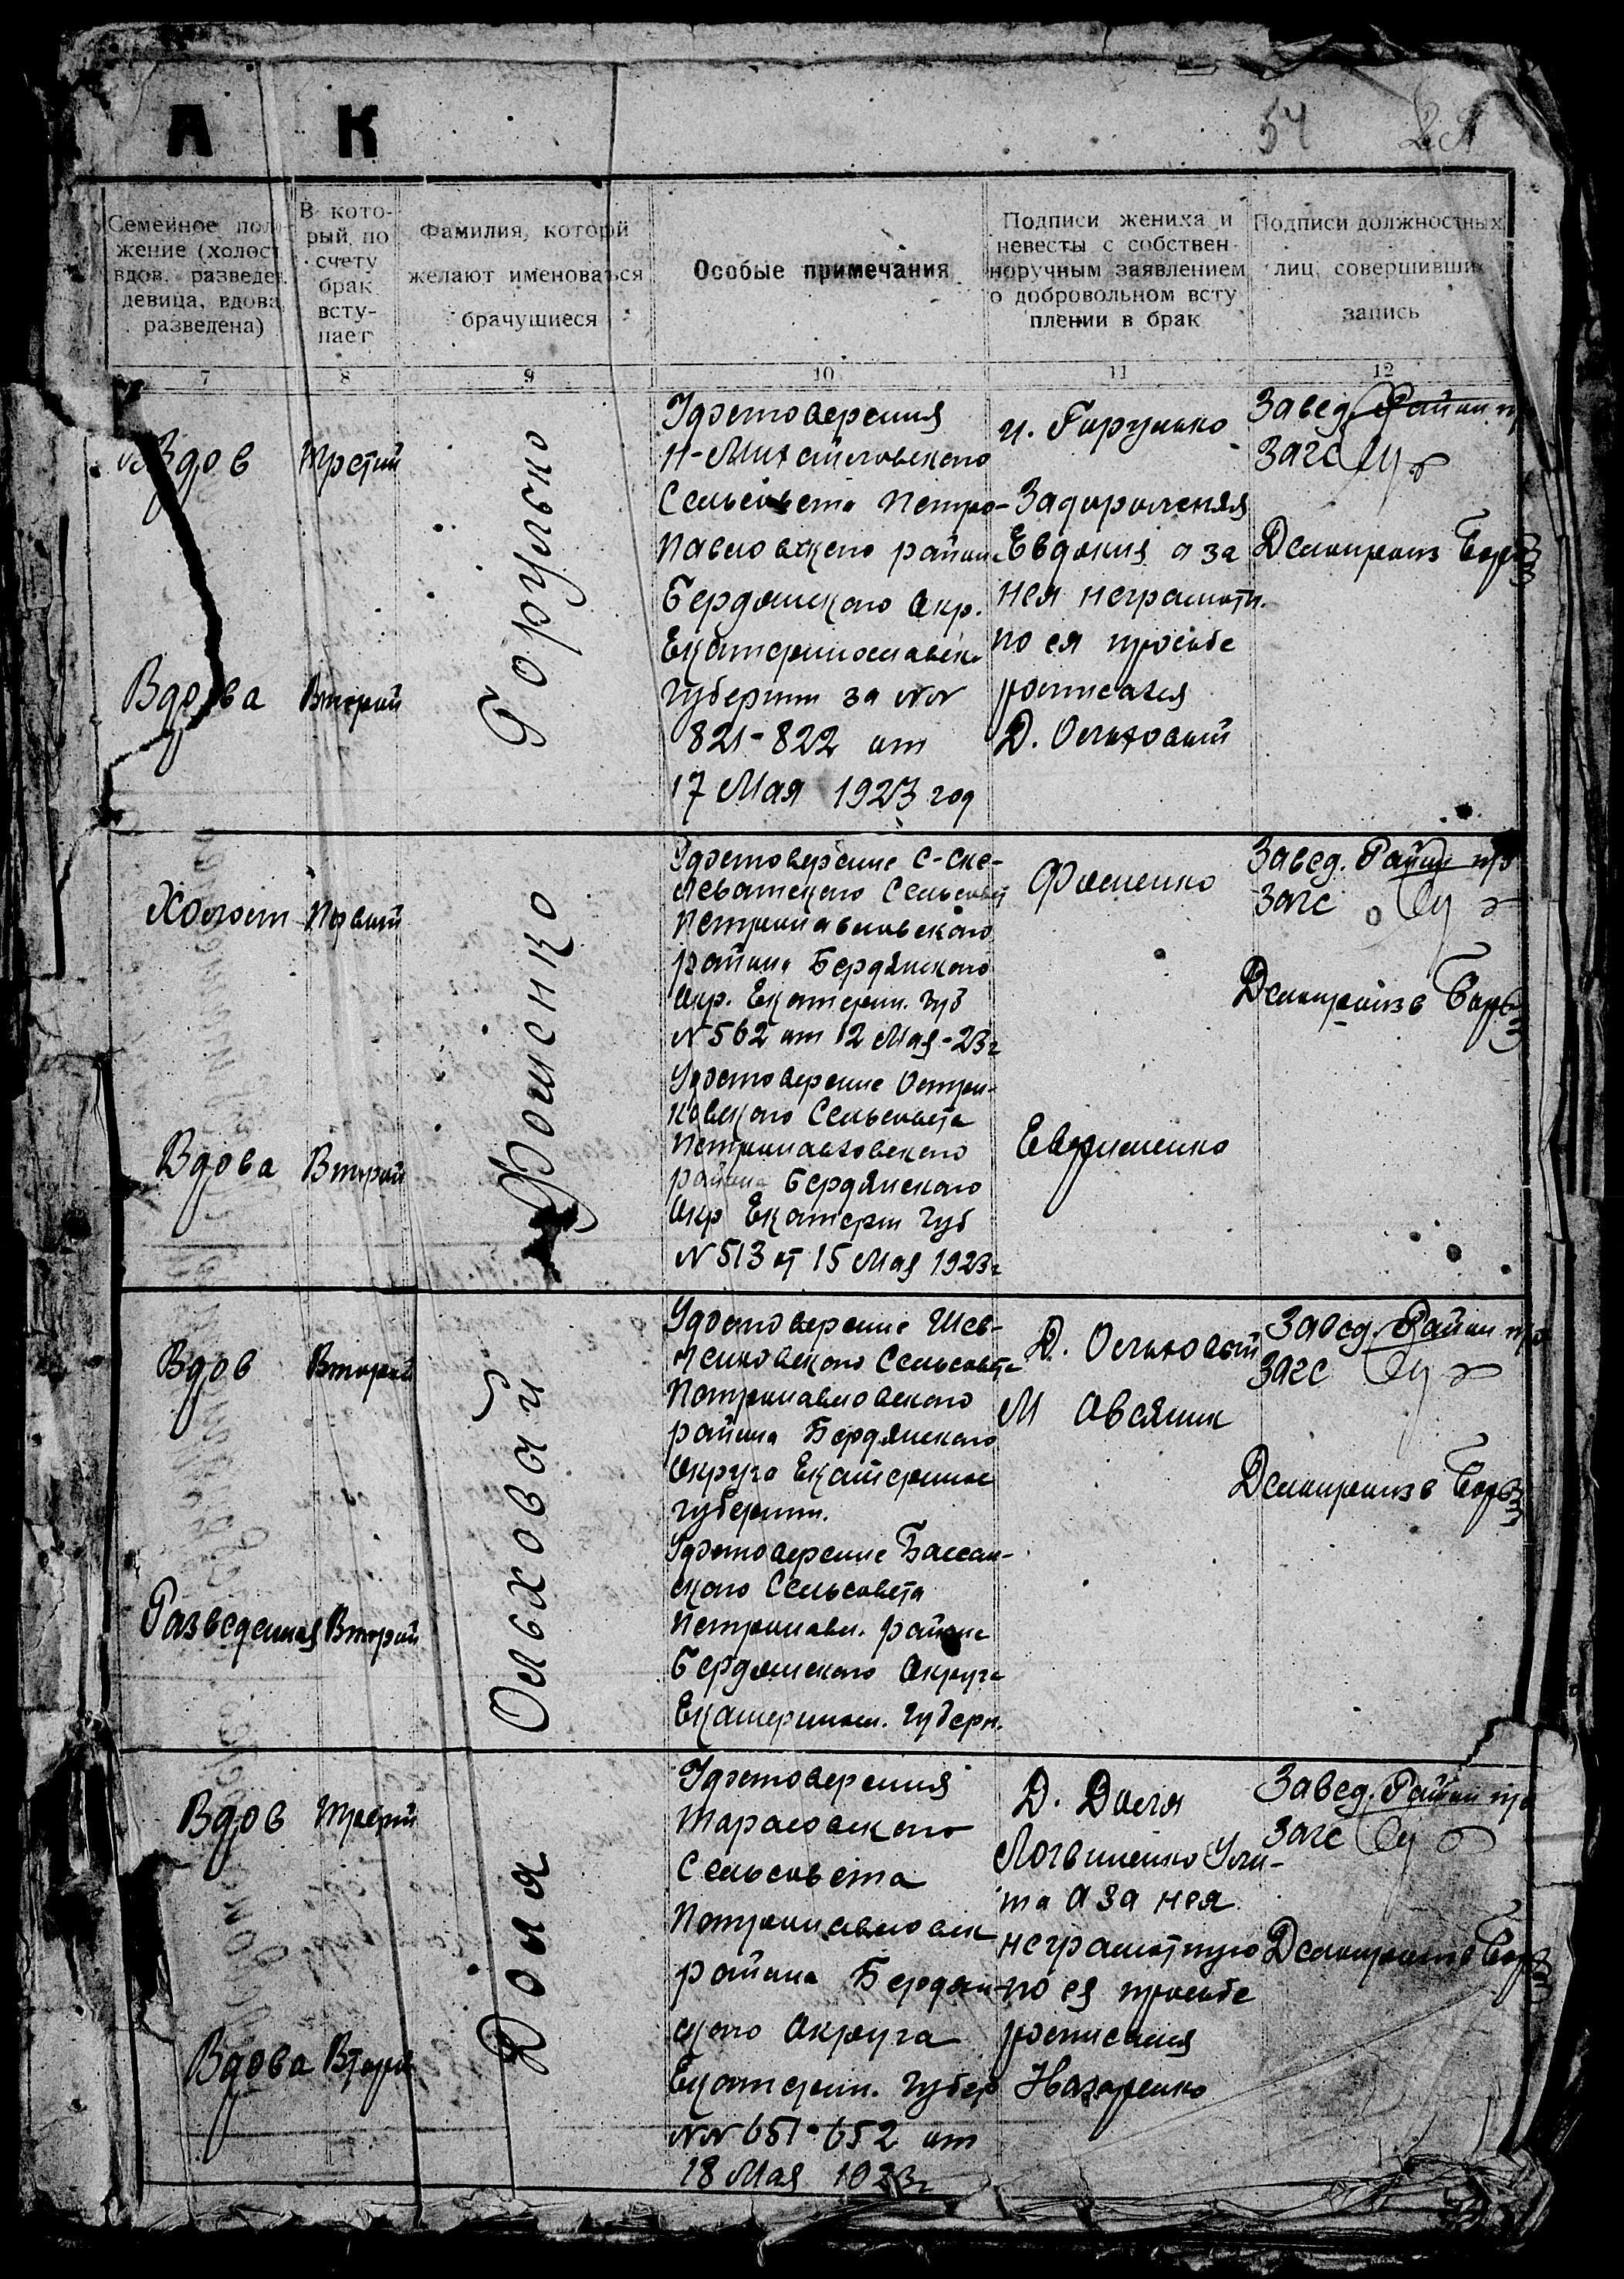 А К
54
Семейное поло-
жение (холост
вдов. разведен
девица, вдова,
разведена)
В кото-
рый по
счету
брак
всту-
пает
Фамилия, которй
желают именоваться
брачущиеся
Особые примечания
Подписи жениха и
невесты с собствен-
норучным заявлением
о добровольном всту
плении в брак
Подписи должностных
лиц, совершивших
запись
7 8 9 10 11 12
Вдов
Третий
Вдова
Второй
Горулько
Удостоверения
Н-Михайловского
Сельсовета Петро-
Павловского район
Бердянского Окр.
Екатеринославск.
Губернии за NN
821-822 от
17 Мая 1923 год
и. Горулько
Задорожняя
Евдокия а за
нея неграмотн.
по ея просьбе
росписался
Д. Ольховый
Завед. Район
Загс
Делопроизв
Холост
Первый
Вдова
Второй
Фоменко
Удостоверение С-Ске-
леватского Сельсовет
Петропавловского
района Бердянского
Окр. Екатерин. Губ
N 562 от 12 Мая-23г
Удостоверение Остри-
ковского Сельсовета
Петропавловского
района Бердянского
Окр Екатерин Губ
N 513 от 15 Мая 1923г
Фоменко
Евдрименко
Завед. Район
Загс
Делопроизв
Вдов
Второй
Разведенная
Второй
Ольховый
Удостоверение Шев-
ченковского Сельсовета
Петропавловского
района Бердянского
Округа Екатеринос
губернии.
Удостоверение Бассан-
ского Сельсовета
Петропавл. района
Бердянского Округа
Екатеринос. Губерн.
Д. Ольховый
М Овсяник
Завед. Район
Загс
Делопроизв
Вдов
Третий
Вдова
Второй
Доля
Удостоверения
Тарасовского
Сельсовета
Петропавловск
района Бердян-
ского Округа
Екатерин. Губер
NN 651-652 от
18 Мая 1923г
Д. Доля
Логвиненко Ули-
та а за нея
неграмотную
по ея просьбе
росписался
Назаренко
Завед. Район
Загс
Делопроизв